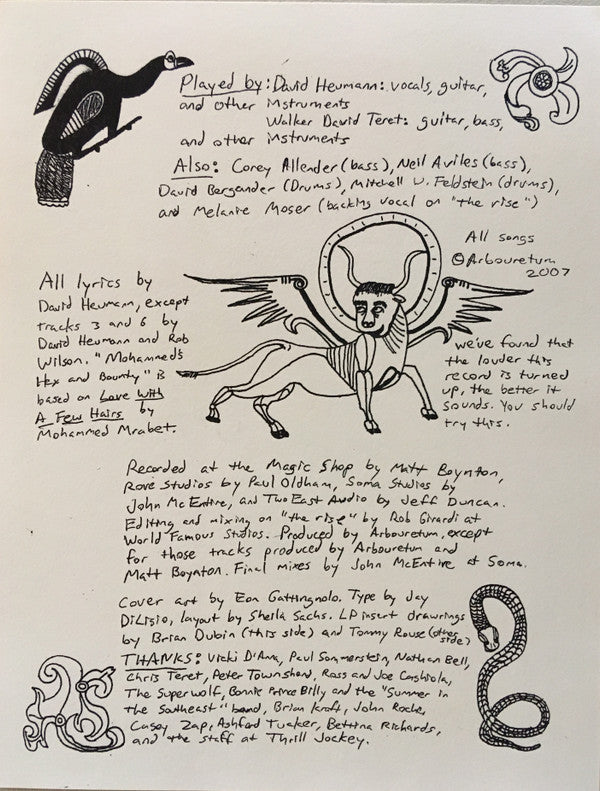 Played by: David Heumann: vocals, guitar,
and other instruments
Walker David Teret: guitar, bass,
and other instruments
Also: Corey Allender (bass), Neil Aviles (bass),
David Bergander (Drums), Mitchell W. Feldstein (drums),
and Melanie Moser (backing vocal on "the rise")
All songs
©Arbouretum
2007
All lyrics by
David Heumann, except
tracks 3 and 6 by
David Heumann and Rob
Wilson. "Mohammed's
Hex and Bounty" is
based on Love With
A Few Hairs by
Mohammed Mrabet.
we've found that
the louder this
record is turned
up, the better it
sounds. You should
try this.
Recorded at the Magic Shop by Matt Boynton,
Rove Studios by Paul Oldham, Soma Studios by
John McEntire, and Two East Audio by Jeff Duncan.
Editing and mixing on "the rise" by Rob Girardi at
World Famous Studios. Produced by Arbouretum, except
for those tracks produced by Arbouretum and
Matt Boynton. Final mixes by John McEntire at Soma.
Cover art by Eon Gattingnolo. Type by Jay
DiLisio, layout by Sheila Sachs. LP insert drawings
by Brian Dubin (this side) and Tommy Rouse (other side)
THANKS: Vicki D'Ana, Paul Sommerstein, Nathan Bell,
Chris Teret, Peter Townshend, Ross and Joe
The Superwolf, Bonnie Prince Billy and the "Summer in
the Southeast" band, Brian Kroft, John Roche,
Casey Zap, Ashford Tucker, Bettina Richards,
and the staff at Thrill Jockey.